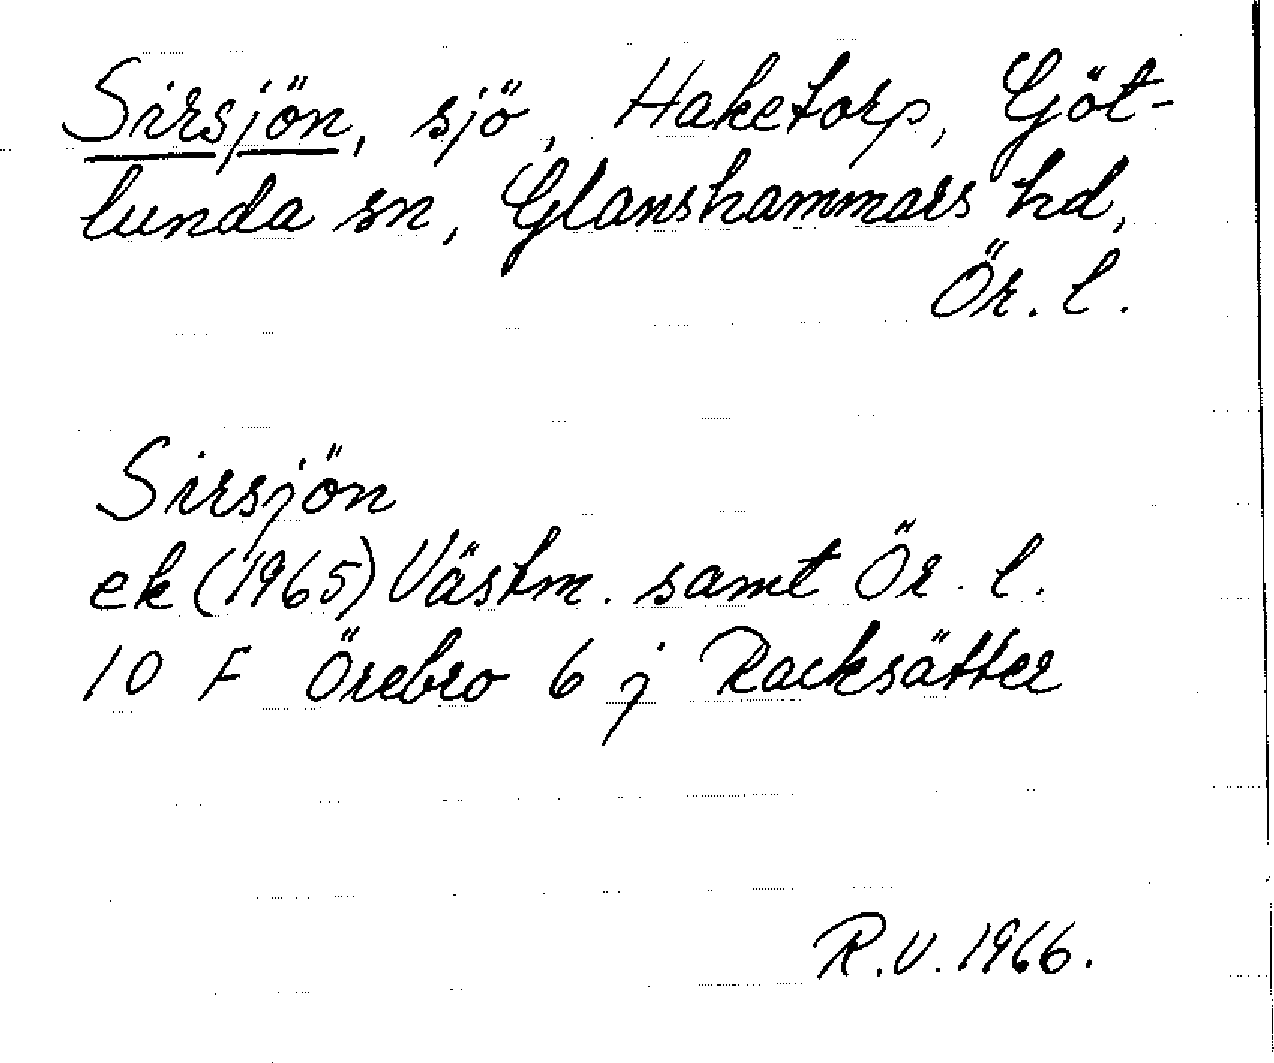 Sirsjön, sjö, Haketorp, Göt-
lunda sn, Glanshammars hd,
Ör. l.
Sirsjön
ek (1965) Västm. samt Ör. l.
10 F Örebro 6 j Racksätter
R.V. 1966.